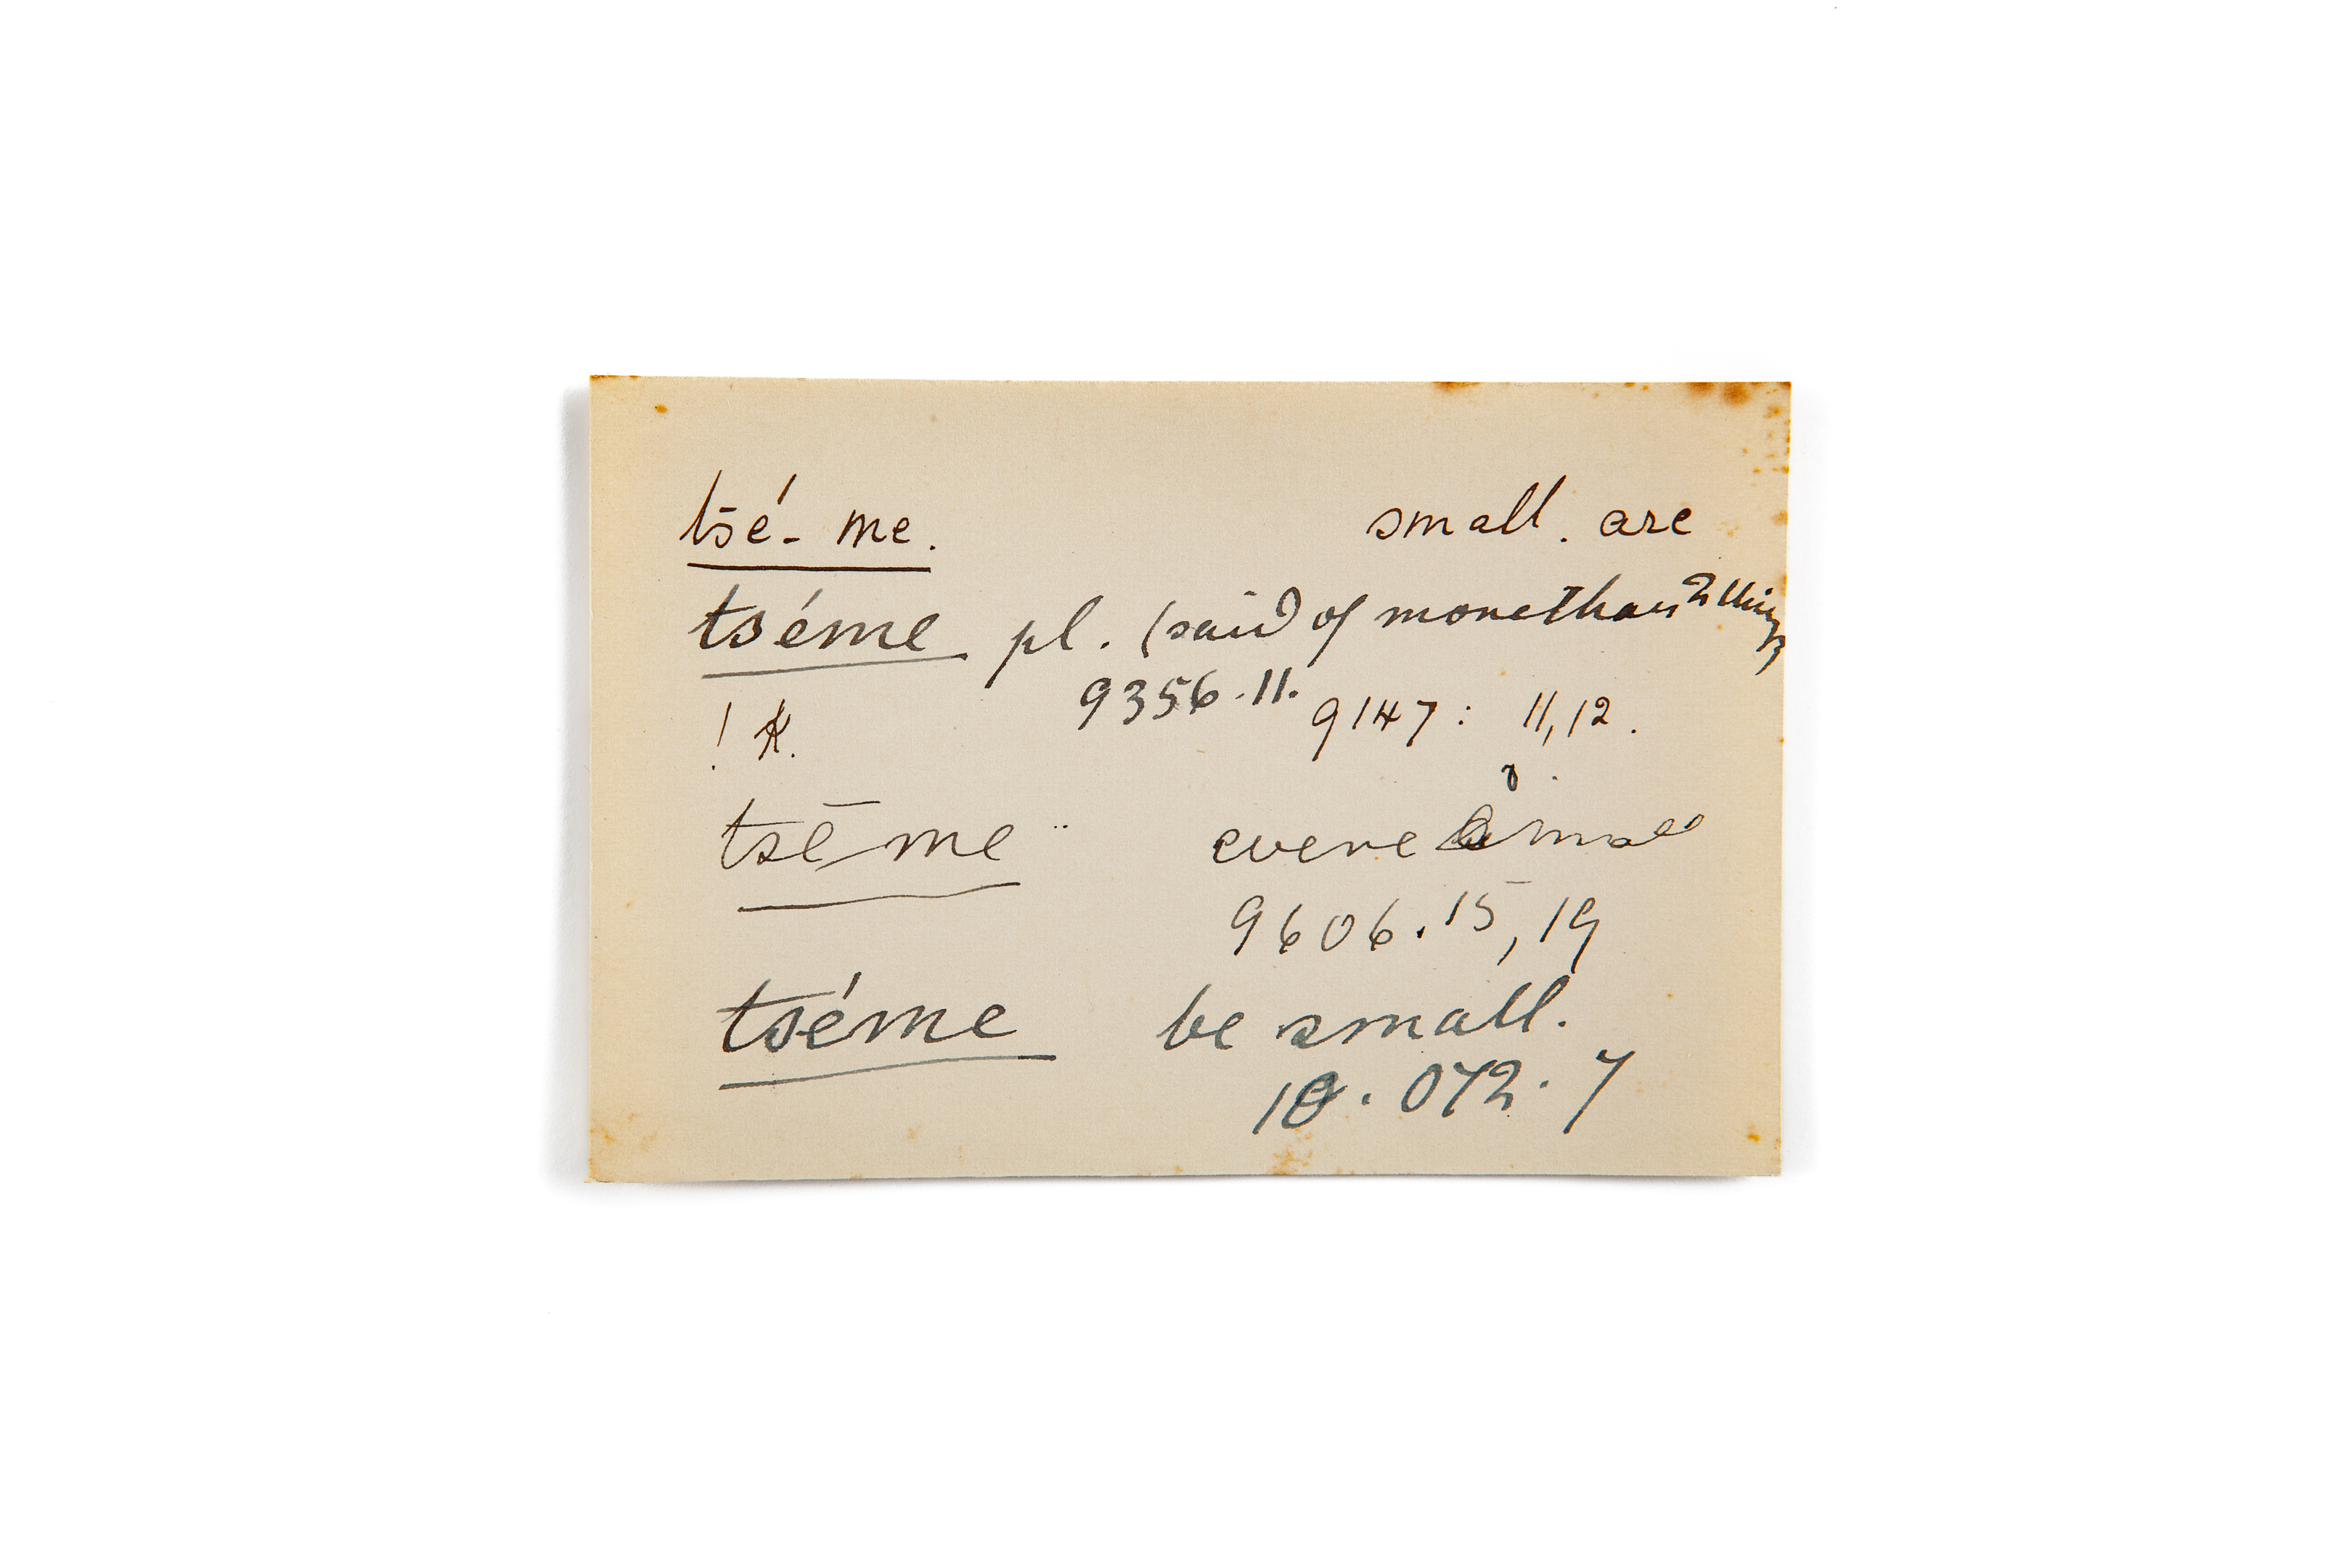 tsé- me. small. are
tséme pl. (said of more than 2 things
! K. 9356.11. 9147: 11,12.
tsē me were small
9606.15,19
tséme be small.
10.072.7